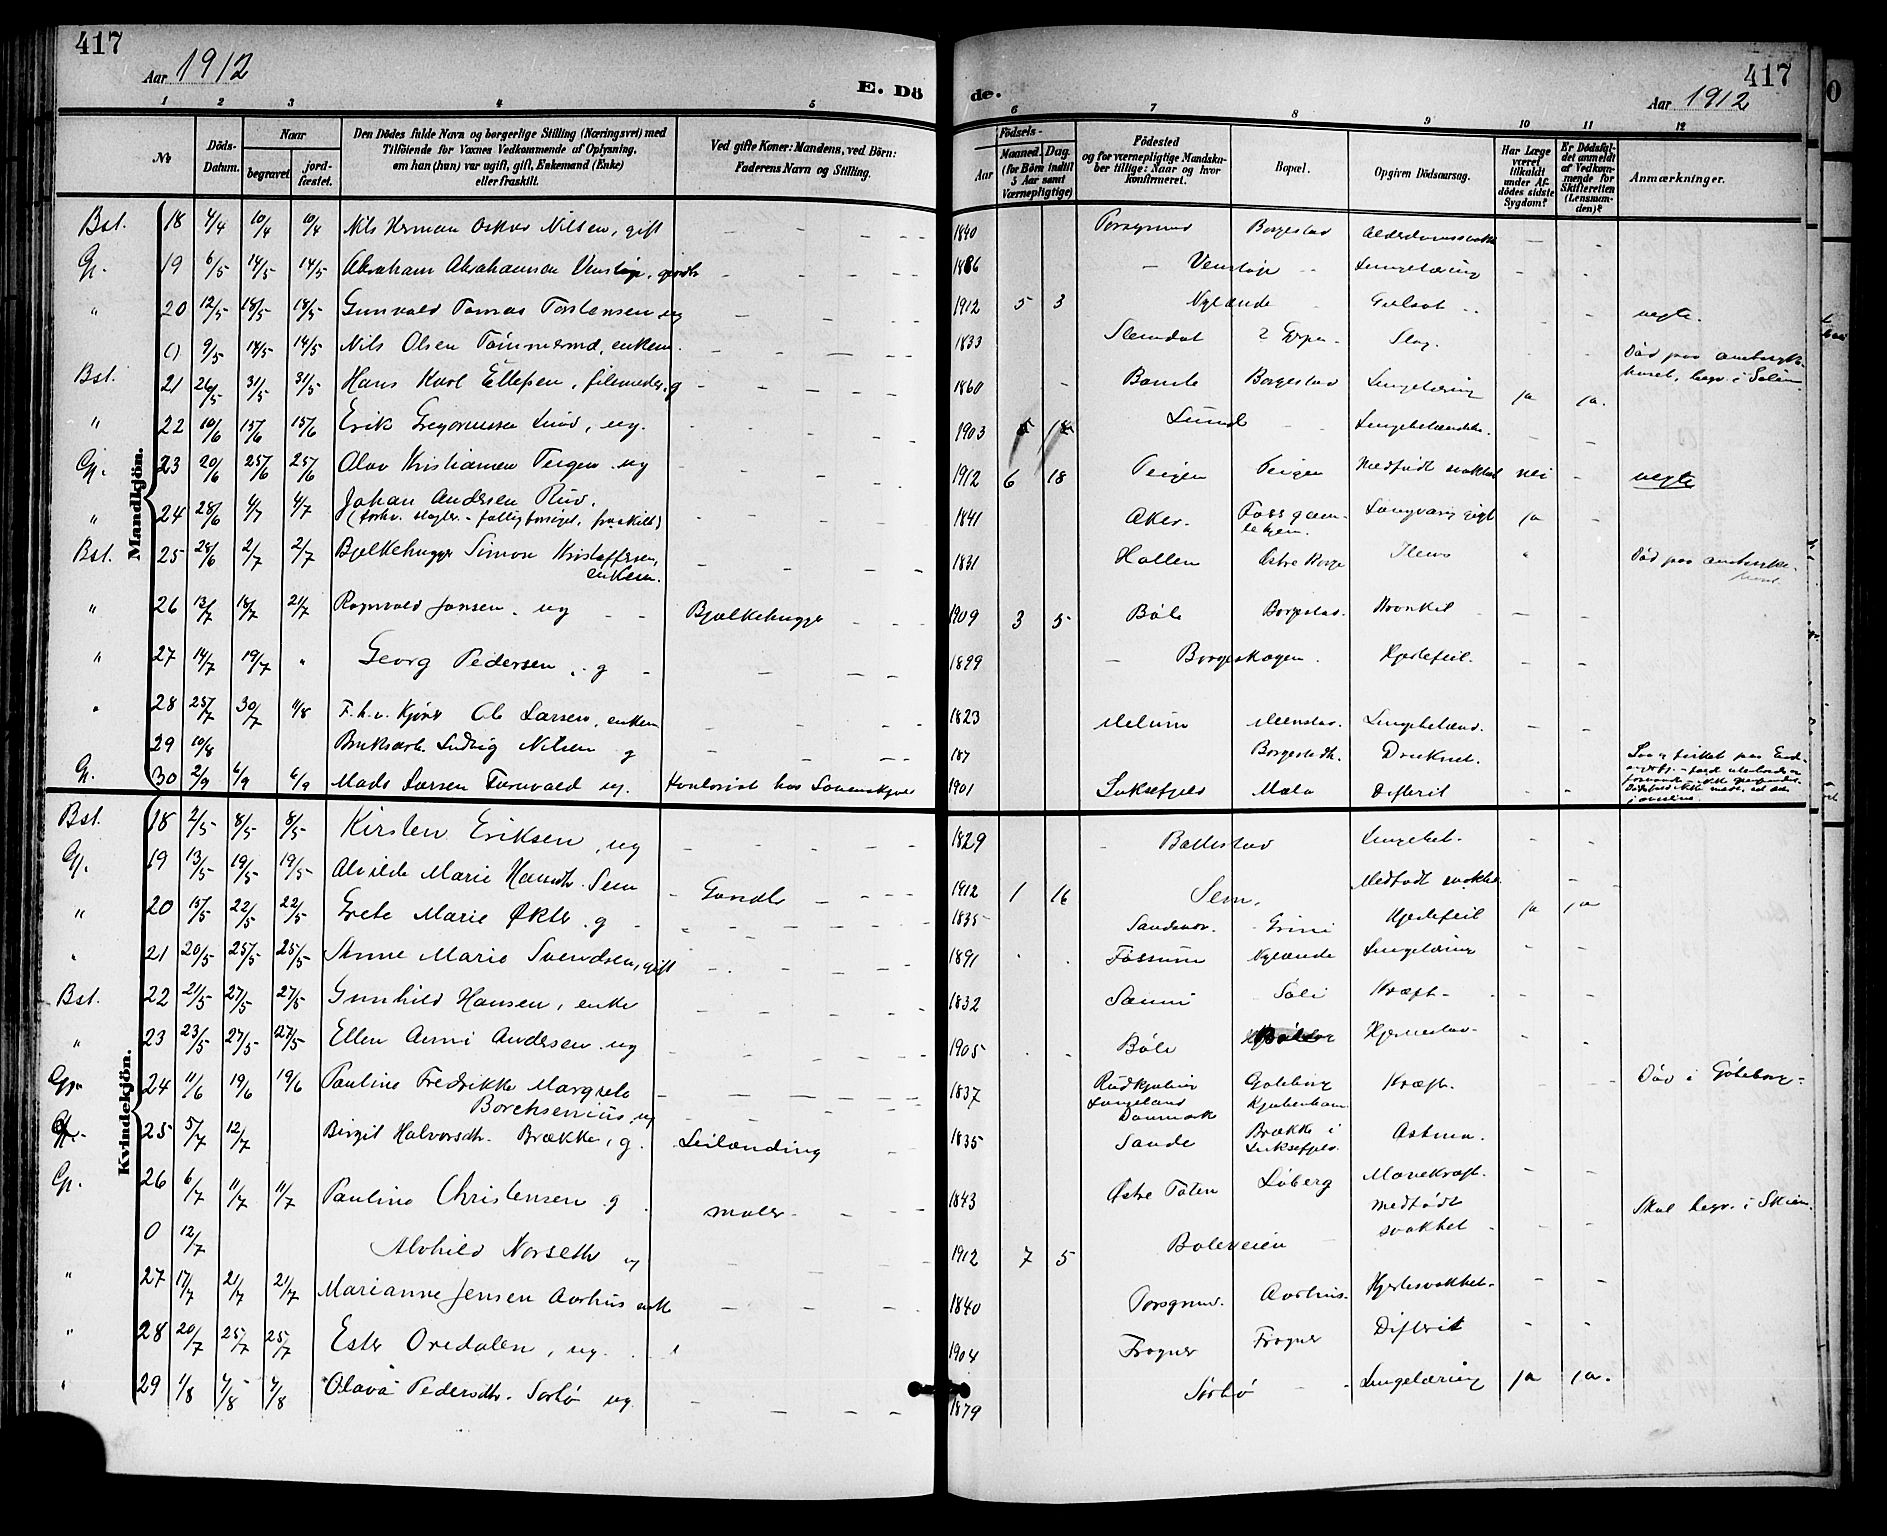 417
Aar 1912
E. Dö
1 2 3 4 5
No
Döds-Datum.
Naar
begravet.
jord-fæstet.
Den Dödes fulde Navn og borgerlige Stilling (Næringsvei) med
Tilföiende for Voxnes Vedkommende af Oplysning,
om han (hun) var ugift, gift, Enkemand (Enke)
eller fraskilt.
Ved gifte Koner: Mandens, ved Börn:
Faderens Navn og Stilling.
Mandkjön.
Bst. 18 4/4 10/4 10/4 Nils Herman Oskar Nilsen, gift
Gp. 19 6/5 14/5 14/5 Abraham Abrahamsen Venstøp,
" 20 12/5 18/5 18/5 Gunvald Tomas Torstensen ug
0 9/5 14/5 14/5 Nils Olsen enkem.
Bst. 21 26/5 31/5 31/5 Hans Karl Ellefsen, g
" 22 10/6 15/6 15/6 Erik Gregoriussen Lund, ug.
Gp. 23 20/6 25/6 25/6 Olav Kristiansen Teigen ug
" 24 28/6 4/7 4/7 Johan Andersen Ruud.
(forhv. slagter - fattigforsørget, fraskilt)
Bst. 25 28/6 2/7 2/7 Bjelkehugger Simon Kristoffersen,
enkem.
" 26 13/7 18/7 21/7 Ragnvald Jansen. ug Bjelkehugger
" 27 14/7 19/7 " Georg Pedersen, g
" 28 25/7 30/7 11/8 F. h. v. Ole Larsen, enkem
29 10/8 Bruksarb. Ludvig Nilsen g
G. 30 2/9 6/9 6/9 Mads Larsen Furuvald ug. Kontorist hos Løvenskjold
Kvindekjön.
Bst. 18 2/5 8/5 8/5 Kirsten Eriksen, ug
Gp. 19 13/5 19/5 19/5 Alvilde Marie Hansdtr. Sem Gaardb
" 20 15/5 22/5 22/5 Grete Marie Økter. g
" 21 20/5 25/5 25/5 Anne Marie Svendsen, gift
Bst. 22 21/5 27/5 27/5 Gunhild Hansen, enke
" 23 23/5 27/5 27/5 Ellen Anni Andersen ug
Gp. 24 11/6 19/6 19/6 Pauline Fredrikke Margrete
Borchsenius, ug
25 5/7 12/7 Birgit Halvorsdtr. Brække, g. Leilænding
Gp. 26 6/7 11/7 11/7 Pauline Christensen g. maler
0 12/7 Alvhild Norseth ug
" 27 17/7 21/7 21/7 Marianne Jensen Aarhus enke
" 28 20/7 25/7 25/7 Ester Oredalen, ug.
" 29 1/8 4/8 4/8 Olava Pedersdtr. Sorbø ug.
de.
417
Aar 1912
6 7 8 9 10 11 12
Födsels-
Aar
Maaned.
Dag.
(for Börn indtil
5 Aar samt
Værnepligtige)
Födested
og for værnepligtige Mandska-
ber tillige: Naar og hvor
konfirmeret.
Bopæl.
Opgiven Dödsaarsag.
Har Læge
været
tilkaldt
under Af-
dödes sidste
Sygdom?
Er Dödsfal-
det anmeldt
af Vedkom-
mende for
Skifteretten
(Lensman-
den)?
Anmærkninger.
1840 Porsgrund Borgestad Alderdomssvakh
1886 Venstøp Lungetæring
1912 5 3 Nylænde Gulsot ægte.
1833 Slemdal Slag. Död paa amtssyke-
huset, begr. i Solum
1860 Bamle Borgestad Lungetæring ja ja.
1903 Lund Lungebetændelse.
1912 6 18 Teigen Teigen Medfödt svakhet nei ægte
1841 Aker. Foss gam-
lehjem. Langvarig gigt ja
1831 Hollen Østre Borge Ileus " Död paa amtssyke-
huset
1909 3 5 Bøle Borgestad. Bronkit
1899 Borgeskogen. Hjertefeil.
1823 Melum Menstad. Lungebetænd.
187 Borgestadh. Druknet.
1901 Luksefjeld Mæla Difterit
1829 Ballestad Lungebet.
1912 1 16 Sem. Medfödt svakhet
1835 Grini Hjertefeil ja ja
1891 Fossum Nylænde Lungetæring
1832 Sanni Soli Kræft
1905 Bøle Hjerneslag
1837 Rudkjøbing
Langeland
Danmark Gøteborg
Kjøbenhavn Kræft. Död i Göteborg.
1835 Sande Brække i
Luksefjeld. Astma.
1843 Østre Toten Løberg Mavekræft.
1912 7 5 Boleveien medfödt
svakhet Skal begr. i Skien.
1840 Porsgrund. Aarhus. Hjertesvakhet.
1904 Frogner Frogner Difterit
1879 Sørbø Lungetæring ja ja.